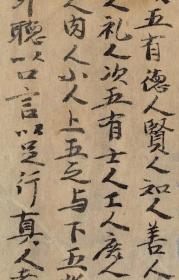 五有德人賢人知人善人
人礼人次五有士人工人庶人
人肉人小人上五之与下五
耳聽以口言以足行真人